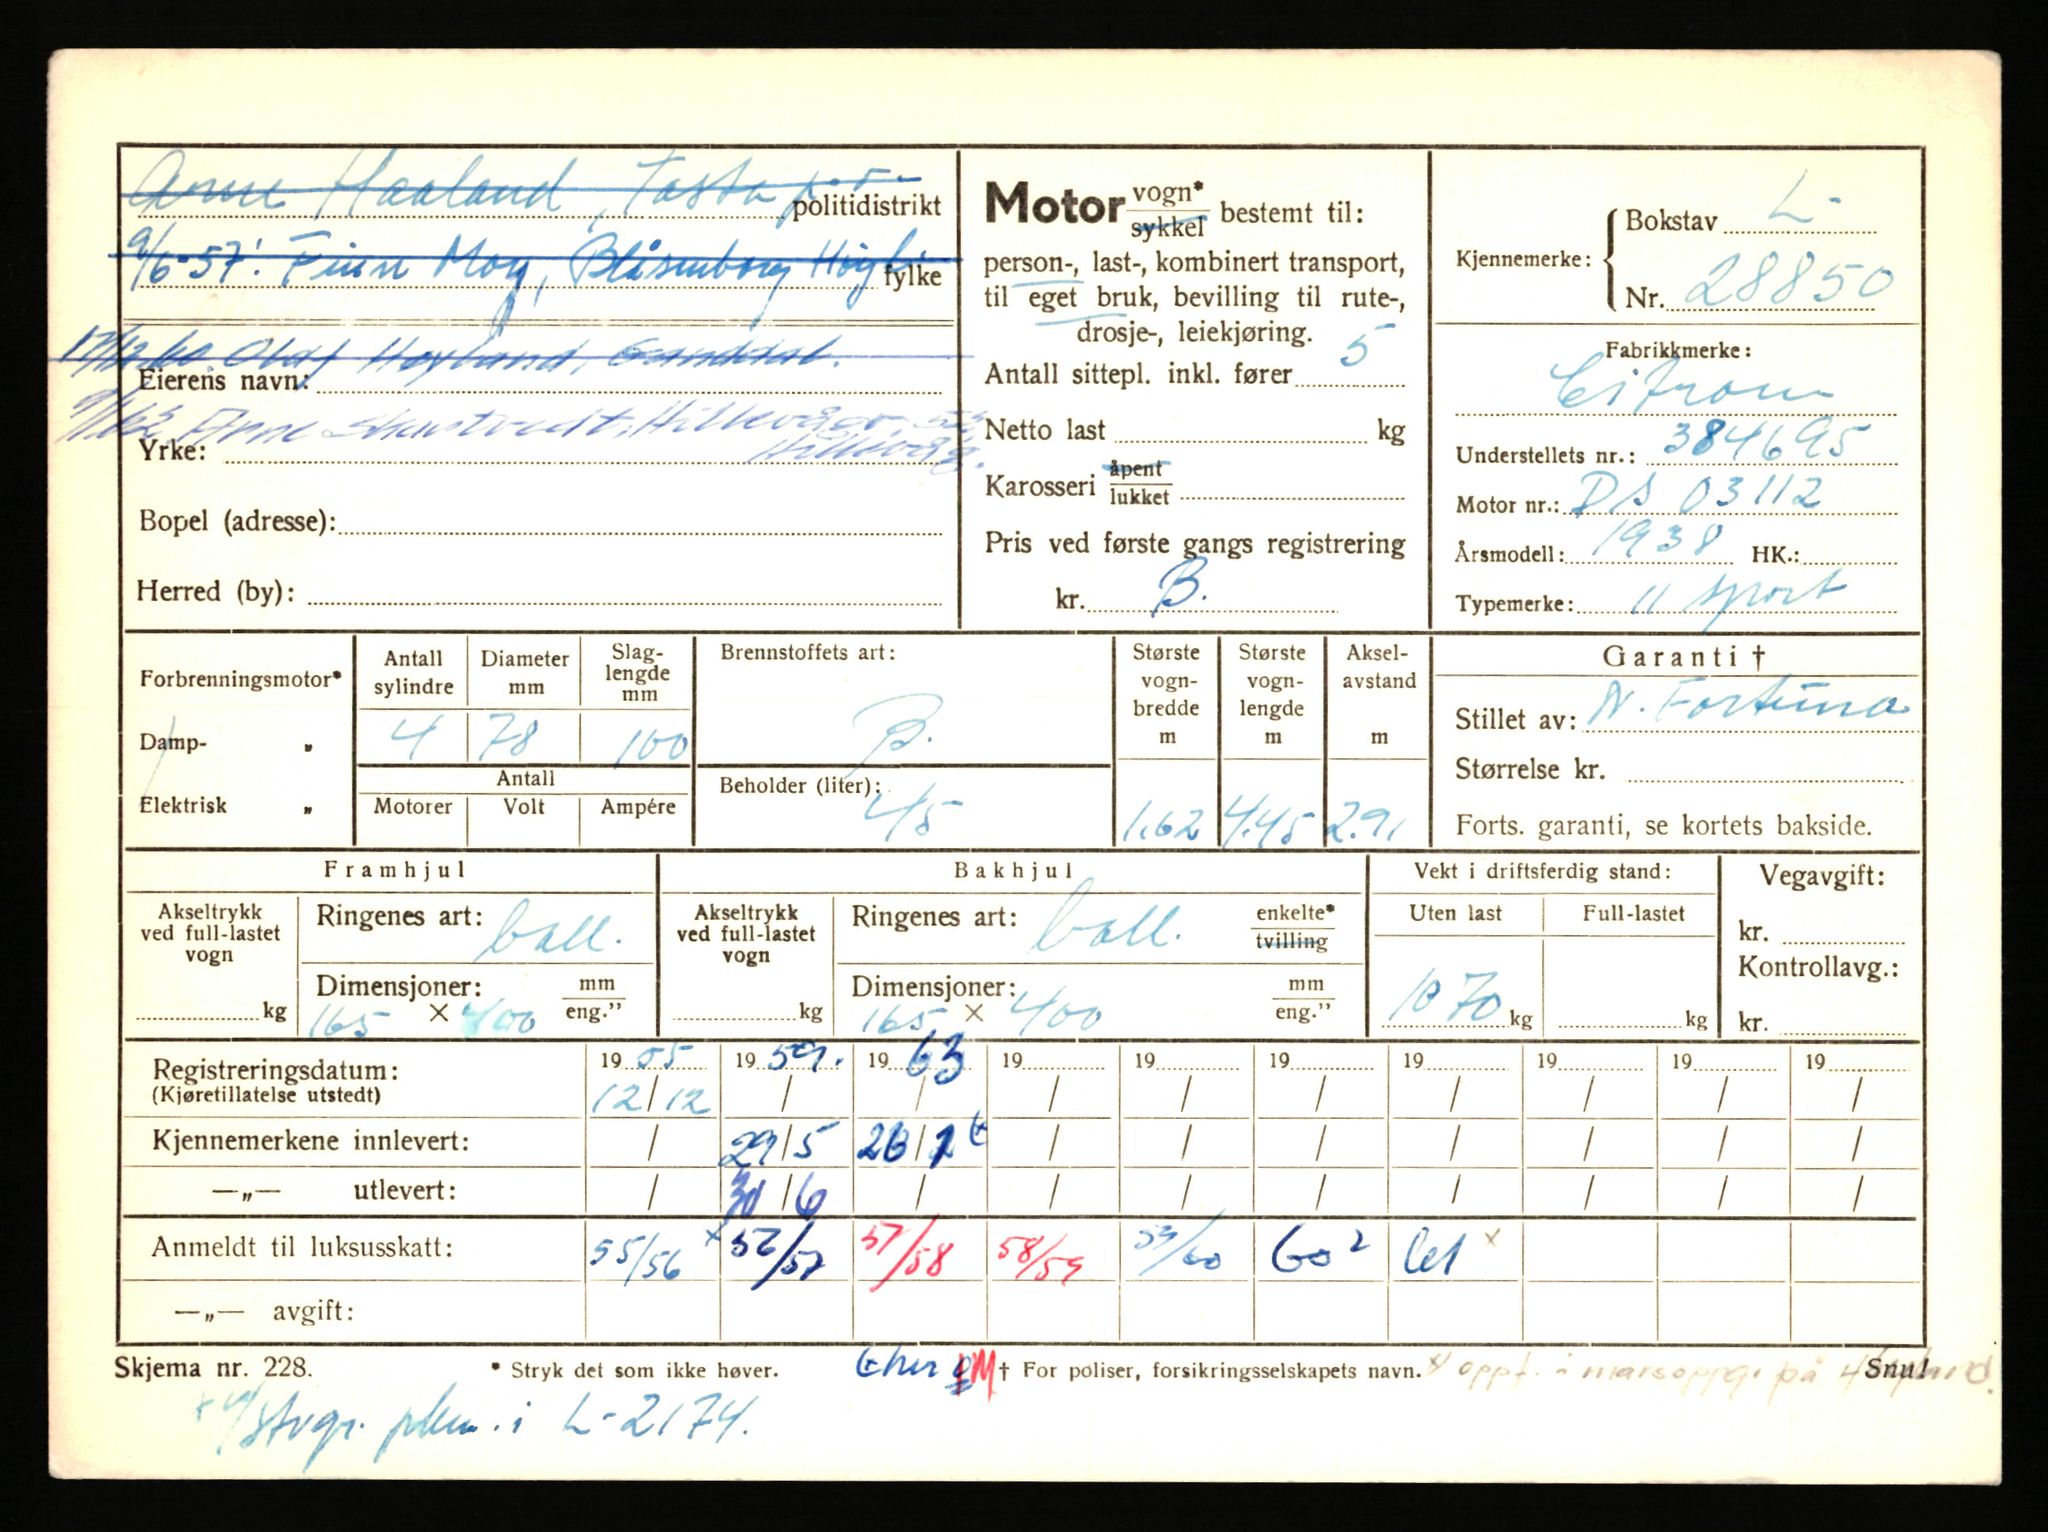 Arne Haaland, Tasta p.å. politidistrikt
9/6-57. Finn Moy, Blåsenborg Høgl. fylke
17/12 60. Olaf Høyland, Ganddal.
Eierens navn:
9/1 62 Arne Skastvedt, Hillevågsv. 53
Yrke: Hillevåg.
Bopel (adresse):
Herred (by):
Motor vogn* sykkel bestemt til:
person-, last-, kombinert transport,
til eget bruk, bevilling til rute-,
drosje-, leiekjøring.
Antall sittepl. inkl. fører 5
Netto last kg
Karosseri åpent lukket
Pris ved første gangs registrering
kr. B.
Kjennemerke: Bokstav L-
Nr. 28850
Fabrikkmerke:
Citroen
Understellets nr.: 384695
Motor nr.: DS 03112
Årsmodell: 1938 HK.:
Typemerke: 11 sport
Forbrenningsmotor*
Damp- „
Elektrisk „
Antall sylindre 4
Diameter mm 78
Slag-lengde mm 100
Antall
Motorer Volt Ampére
Brennstoffets art:
B.
Beholder (liter):
45
Største vogn-bredde m 1.62
Største vogn-lengde m 4.45
Aksel-avstand m 2.91
Garanti †
Stillet av: N. Fortuna
Størrelse kr.
Forts. garanti, se kortets bakside.
Framhjul
Akseltrykk ved full-lastet vogn kg
Ringenes art: ball.
Dimensjoner: mm eng.”
165 × 400
Bakhjul
Akseltrykk ved full-lastet vogn kg
Ringenes art: ball. enkelte* tvilling
Dimensjoner: mm eng.”
165 × 400
Vekt i driftsferdig stand:
Uten last Full-lastet
1070 kg kg
Vegavgift:
kr.
Kontrollavg.:
kr.
Registreringsdatum: 19 55 19 59. 19 63 19 19 19 19 19 19 19
(Kjøretillatelse utstedt) 12/12 / / / / / / / / /
Kjennemerkene innlevert: / 29/5 26/1 / / / / / / /
—„— utlevert: / 30/6 / / / / / / / /
Anmeldt til luksusskatt: 55/56 x 56/57 57/58 58/59 59/60 60² 61 x
—„— avgift:
Skjema nr. 228. * Stryk det som ikke høver. † For poliser, forsikringsselskapets navn. Snu!
x oppf. i
på
pkn. i L-2174.